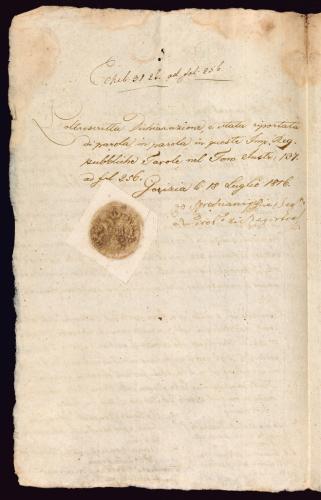 Exhib. 31 Xb. ad fol. 256.
L'oltrescritta Dichiarazione è stata riportata
di parola in parola in queste Imp. Reg.
pubbliche Tavole nel Tom. Instr. 137.
ad fol 256. Gorizia li 18 Luglio 1816.